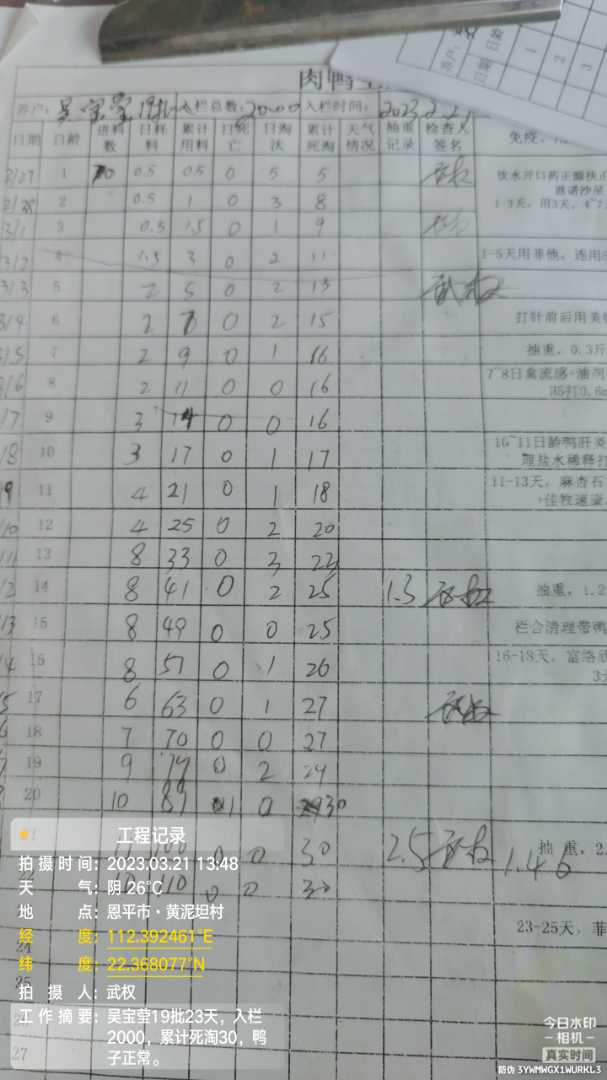 肉鸭
客户： 吴宝莹19批 入栏总数：2000 入栏时间：2023.2.27
日期 日龄 进料数 日耗料 累计用料 日死亡 日淘汰 累计死淘 天气情况 抽重记录 检查人签名 免疫、
2/27 1 0.5 0.5 0 5 5 武权 饮水开口药
2/28 2 0.5 1 0 3 8 1-3天，用3天，4~7
3/1 3 0.5 1.5 0 1 9
3/2 4 1.5 3 0 2 11 1-5天用菲他，连用
3/3 5 2 5 0 2 13 武权
3/4 6 2 7 0 2 15 打针前后用
3/5 7 2 9 0 1 16 抽重，0.3斤
3/6 8 2 11 0 0 16 7~8日禽流感
/7 9 3 14 0 0 16
/8 10 3 17 0 1 17 10~11日龄鸭肝炎 理盐水稀释打
/9 11 4 21 0 1 18 11-13天，麻杏石 +佳牧速
/10 12 4 25 0 2 20
/11 13 8 33 0 3 23
/12 14 8 41 0 2 25 1.3 武权 抽重，1.2
/13 15 8 49 0 0 25 栏舍清理带鸭
/14 16 8 57 0 1 26 16-18天，富洛 3
/15 17 6 63 0 1 27 武权
18 7 70 0 0 27
19 9 79 0 2 29
20 10 89 1 0 30
100 0 0 30 2.5 武权 抽重，2. 1.46
10 110 0 0 30
23-25天，菲
24
25
27
工程记录
拍摄时间：2023.03.21 13:48
天 气：阴 26℃
地 点：恩平市·黄泥坦村
经 度：112.392461°E
纬 度：22.368077°N
拍 摄 人：武权
工作摘要：吴宝莹19批23天，入栏
2000，累计死淘30，鸭
子正常。
客户：
日期 日龄
1
2
3
今日水印
-相机-
真实时间
防伪 3YWMWGX1WURKL3